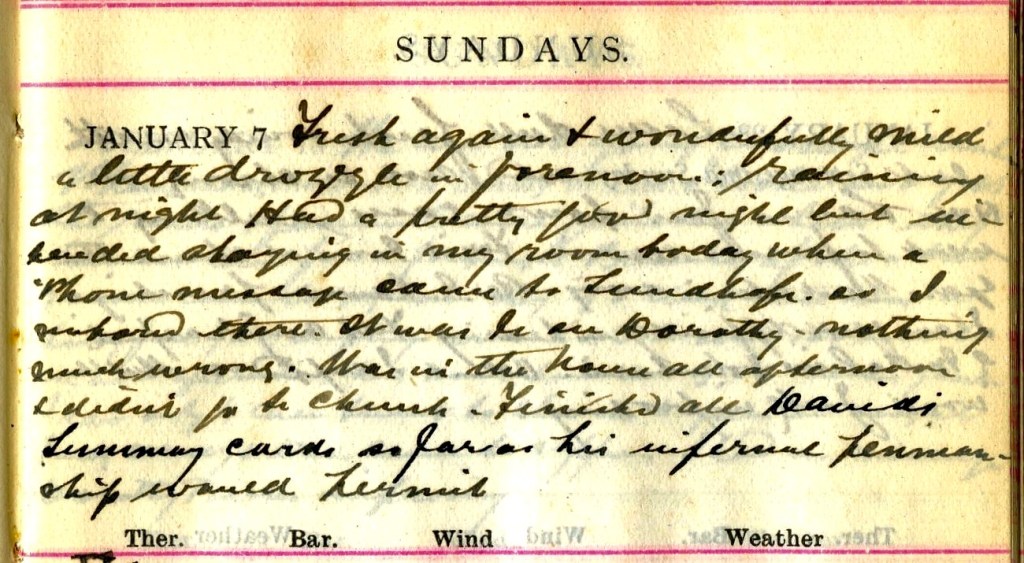 SUNDAYS.
JANUARY 7 Fresh again & wonderfully mild
a little drizzle in forenoon; raining
at night Had a pretty good night but in-
tended staying in my room today when a
'Phone message came to so I
there. It was to see Dorothy - nothing
much wrong. Was in the house all afternoon
& didn't go to Church. Finished all Davids
Summary cards so far as his infernal penman-
ship would permit
Ther. Bar. Wind Weather